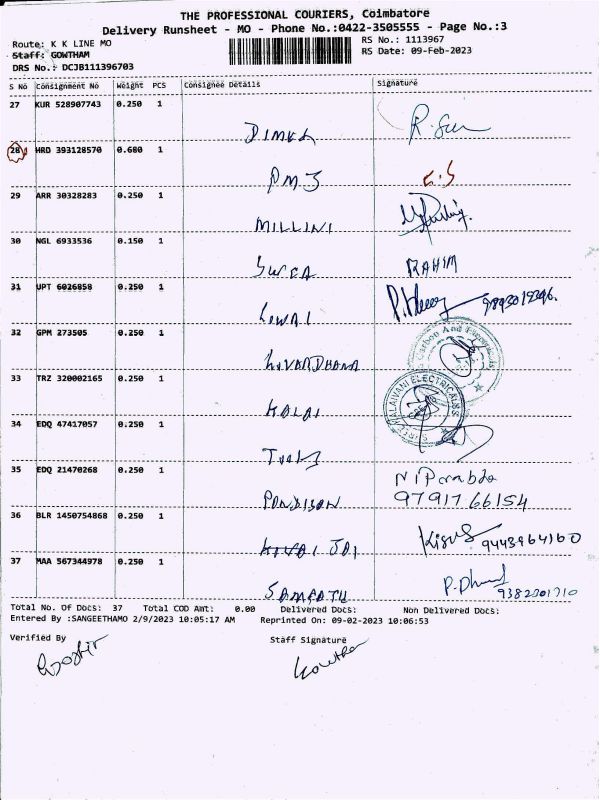 THE PROFESSIONAL COURIERS, Coimbatore
Delivery Runsheet - MO - Phone No.:0422-3505555 - Page No.:3
Route: K K LINE MO
RS No.: 1113967
Staff: GOWTHAM
RS Date: 09-Feb-2023
DRS No.: DCJB111396703
S No Consignment No Weight PCS Consignee Details Signature
27 KUR 528907743 0.250 1
28 HRD 393128570 0.680 1
PMJ
29 ARR 30328283 0.250 1
MILLINI
30 NGL 6933536 0.150 1
RAHIM
31 UPT 6026858 0.250 1
32 GPM 273505 0.250 1
33 TRZ 320002165 0.250 1
KALAI
34 EDQ 47417057 0.250 1
35 EDQ 21470268 0.250 1
97917 66154
36 BLR 1450754868 0.250 1
KOVAI JAI
37 MAA 567344978 0.250 1
SAMPATH
Total No. Of Docs: 37 Total COD Amt: 0.00 Delivered Docs: Non Delivered Docs:
Entered By :SANGEETHAMO 2/9/2023 10:05:17 AM Reprinted On: 09-02-2023 10:06:53
Verified By Staff Signature